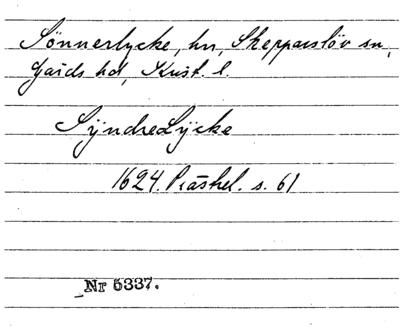 Sönnerlycke, hn, Skepparslöv sn,
Gärds hd, Krist. l.
Syndre Lycke
1624. Präskel. s. 61
Nr 5337.